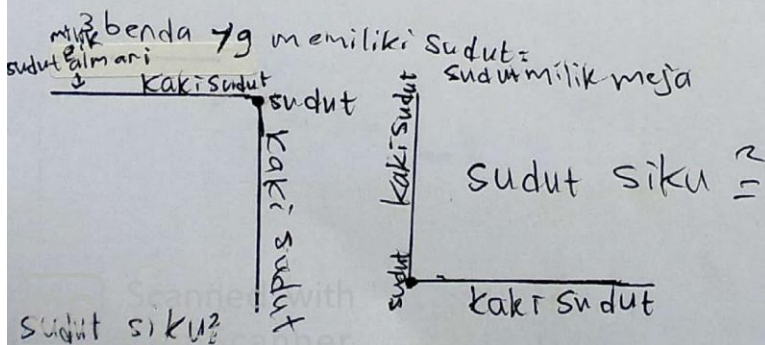 3 benda yg memiliki sudut =
milik
sudut almari
kaki sudut
sudut
kaki sudut
sudut siku²=
sudut milik meja
kaki sudut
sudut siku²=
sudut
kaki sudut
Scanned with